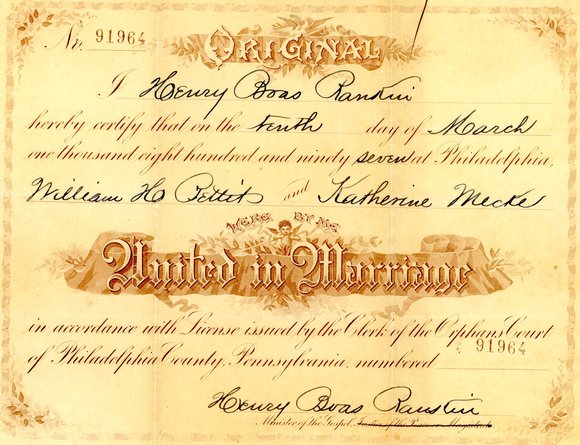 No. 91964
ORIGINAL
I Henry Boas Rankin
hereby certify that on the tenth day of March
one thousand eight hundred and ninety seven at Philadelphia,
William H Pettit and Katherine Mecke
WERE BY ME
United in Marriage
in accordance with License issued by the Clerk of the Orphans Court
of Philadelphia County, Pennsylvania, numbered 91964
Henry Boas Rankin
Minister of the Gospel,